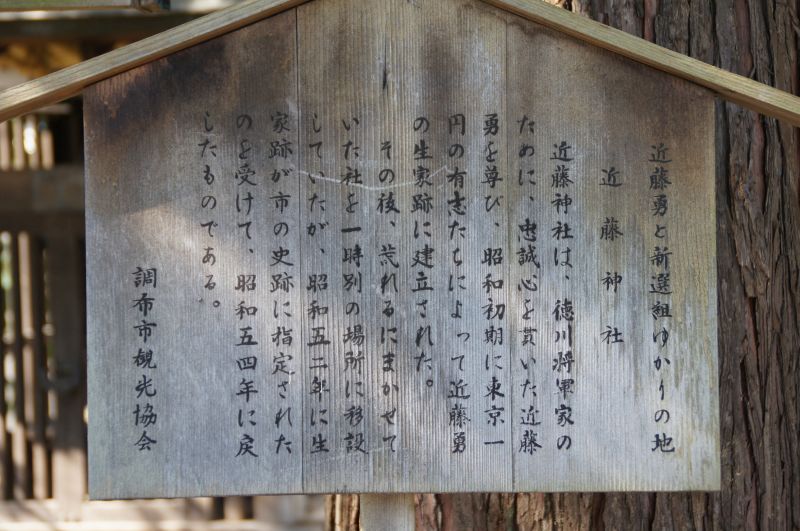 近藤勇と新選組ゆかりの地
近藤神社
近藤神社は、徳川将軍家の
ために、忠誠心を貫いた近藤
勇を尊び、昭和初期に東京一
円の有志たちによって近藤勇
の生家跡に建立された。
その後、荒れるにまかせて
いた社を一時別の場所に移設
していたが、昭和五二年に生
家跡が市の史跡に指定された
のを受けて、昭和五四年に戻
したものである。
調布市観光協会